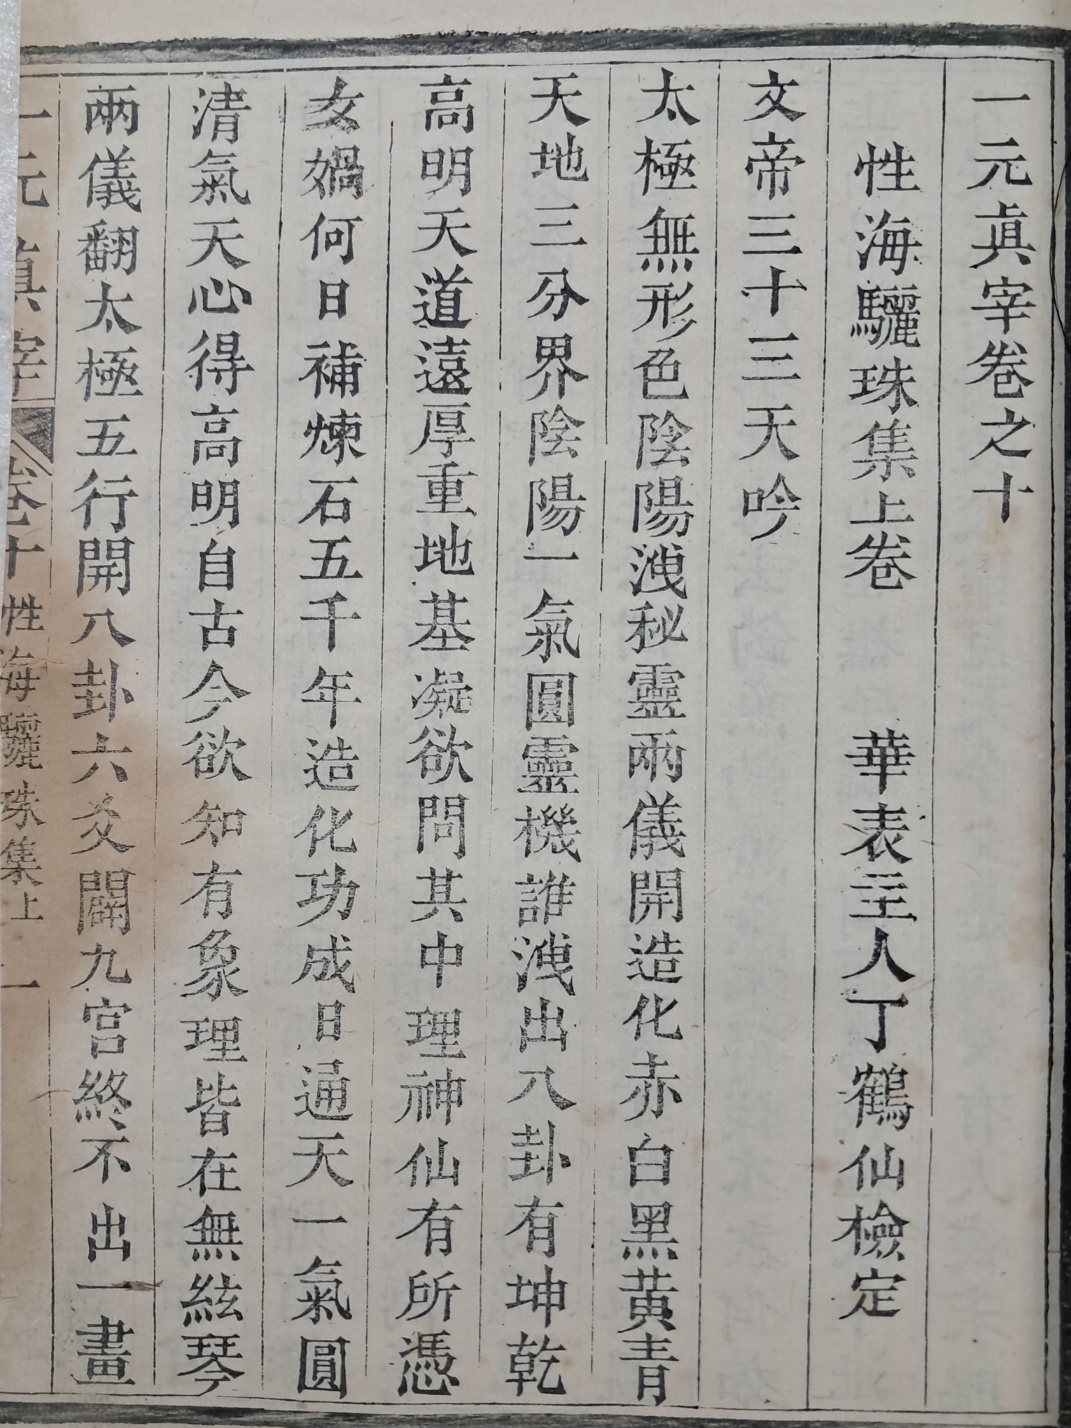 一元眞宰卷之十
性海驪珠集上卷　華表主人丁鶴仙檢定
文帝三十三天吟
太極無形色陰陽洩秘靈兩儀開造化赤白黑黃青
天地三分界陰陽一氣圓靈機誰洩出八卦有坤乾
高明天道遠厚重地基凝欲問其中理神仙有所憑
女媧何日補煉石五千年造化功成日通天一氣圓
清氣天心得高明自古今欲知有象理皆在無絃琴
兩儀翻太極五行開八卦六爻闢九宮終不出一畫
一元眞宰　卷十　性海驪珠集上　一